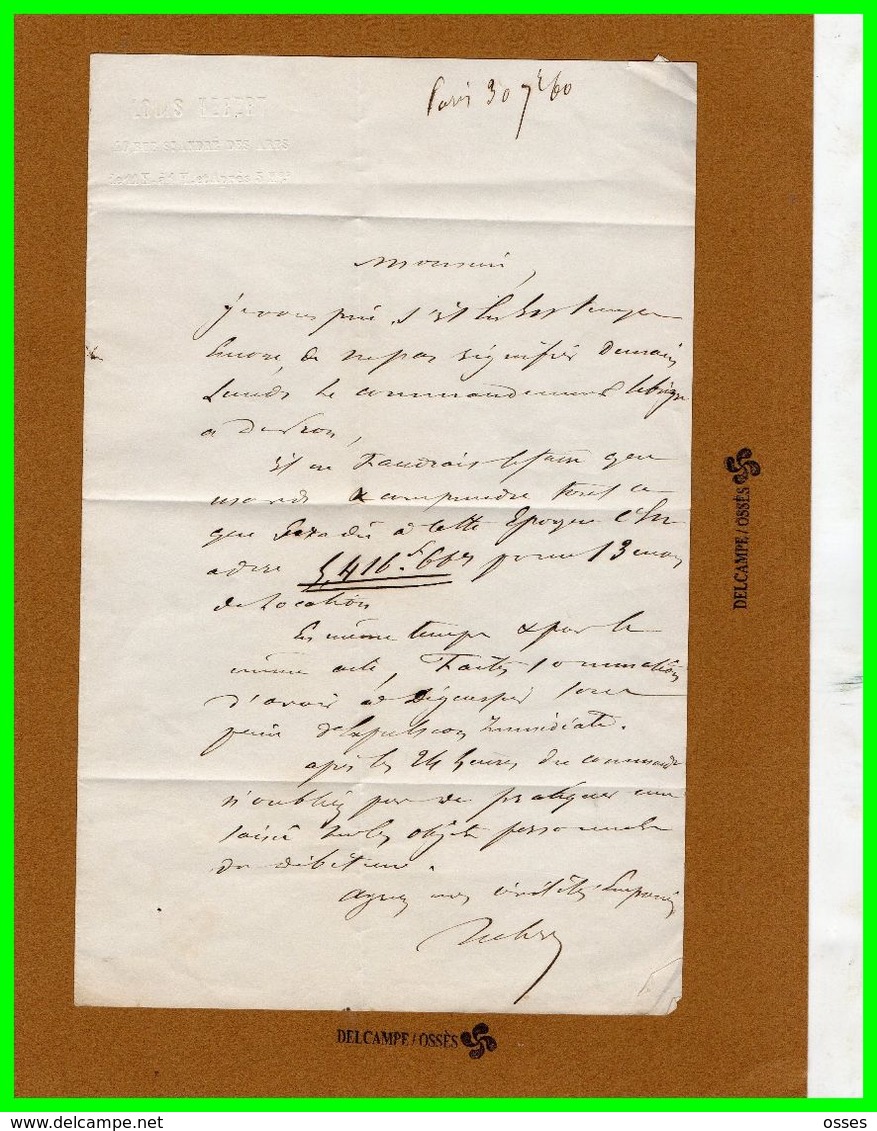 RUE ST ANDRÉ DES ARTS
Paris 30 7bre 60
Monsieur,
je vous prie, s'il en est temps
Encore, de ne pas signifier Demain
Lundi le commandement
a
il ne Faudrait le faire que
mardi & comprendre tout ce
que sera dû à cette Epoque c'est
à dire 5,416 f 66 c pour 13 mois
de Location
En même temps & par le
même acte, Faites sommation
d'avoir à déguerpir sous
peine d'Expulsion Immédiate.
après les 24 heures du commandt
n'oubliez pas de pratiquer une
saisie sur les objets personnels
du débiteur.
Agréez mes civilités Empressées
DELCAMPE/OSSÈS
DELCAMPE/OSSÈS
delcampe.net
osses